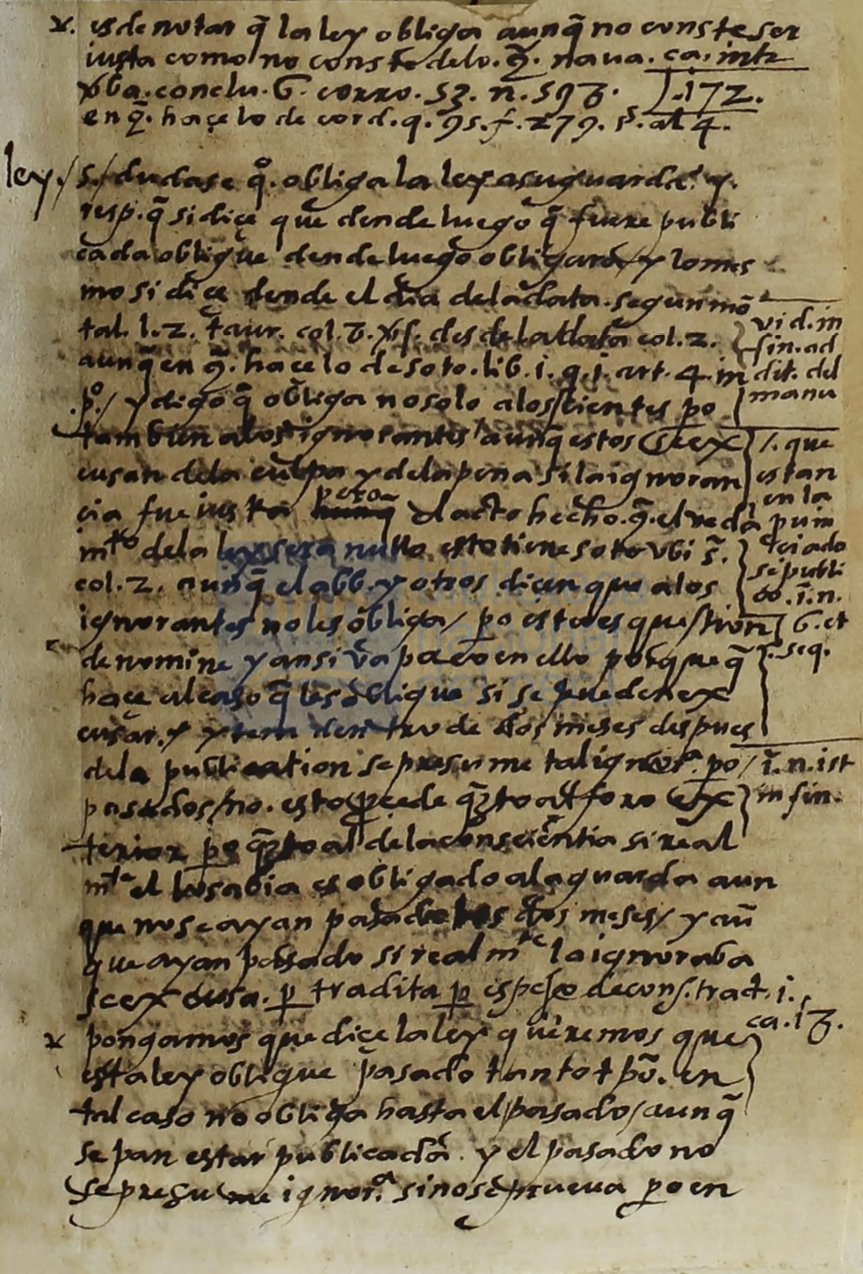 es de notar q̃ la ley obliga aunq̃ no conste ser
iusta como no conste delo. q̃. naua. ca. intr
conclu. 6. corro. 53. n. 593. 172.
en q̃. haçe lo de cord. q. 95. f. 279. al 4.
ley. / S. / dudase qº. obliga la ley a su guarda. y.
resp. q̃ si diçe que dende luego q̃ fuere publi
cada obligue dende luego obligara / y lo mes
mo si diçe dende el dia dela data. segun mõ
tal. l. 2. taur. col. 3. desdela data col. 2.
aunq̃ en q̃. haçe lo de soto. lib. i. q. j. art. 4. in
pº. / y digo q̃ obliga no solo alos scientes po
tambien alos ignorantes aunq̃ estos se ex
cusan dela culpa y dela pena si la ignoran
cia fue iusta pero el acto hecho. q̃. el veda
mtº dela ley sera nullo. esto tiene soto vbi s̃.
col. 2. aunq̃ el abb. y otros dicen que alos
ignorantes no les obliga / po esto es question
de nomine y ansi va poco en ello porque q̃
haçe al caso q̃ les oblique si se pueden ex
cusar. y ytem dentro de dos meses despues
dela publication se presume tal ignorª. po /
pasados / no. esto pcede qto al foro ex
terior po qto al dela consciẽntia si real
mte el lo sabia es obligado a la guarda aun
que no se ayan pasado los dos meses / y aũ
que ayan pasado si realmte la ignoraba
se excusa. p tradita p espejo de cons. tract. i.
ca. 13.
pongamos que diçe la ley queremos que
esta ley oblique pasado tanto tpõ. en
tal caso no obliga hasta el pasado / aunq̃
sepan estar publicada. y el pasado no
se presume ignorª. sino se prueua po en
vid. in
fin. ad
dit. del
manu
/. que
estan
en la
prin
cipiado
se publi
co. ĩ. n.
6. et
seq.
ĩ. n. ist
in fin.